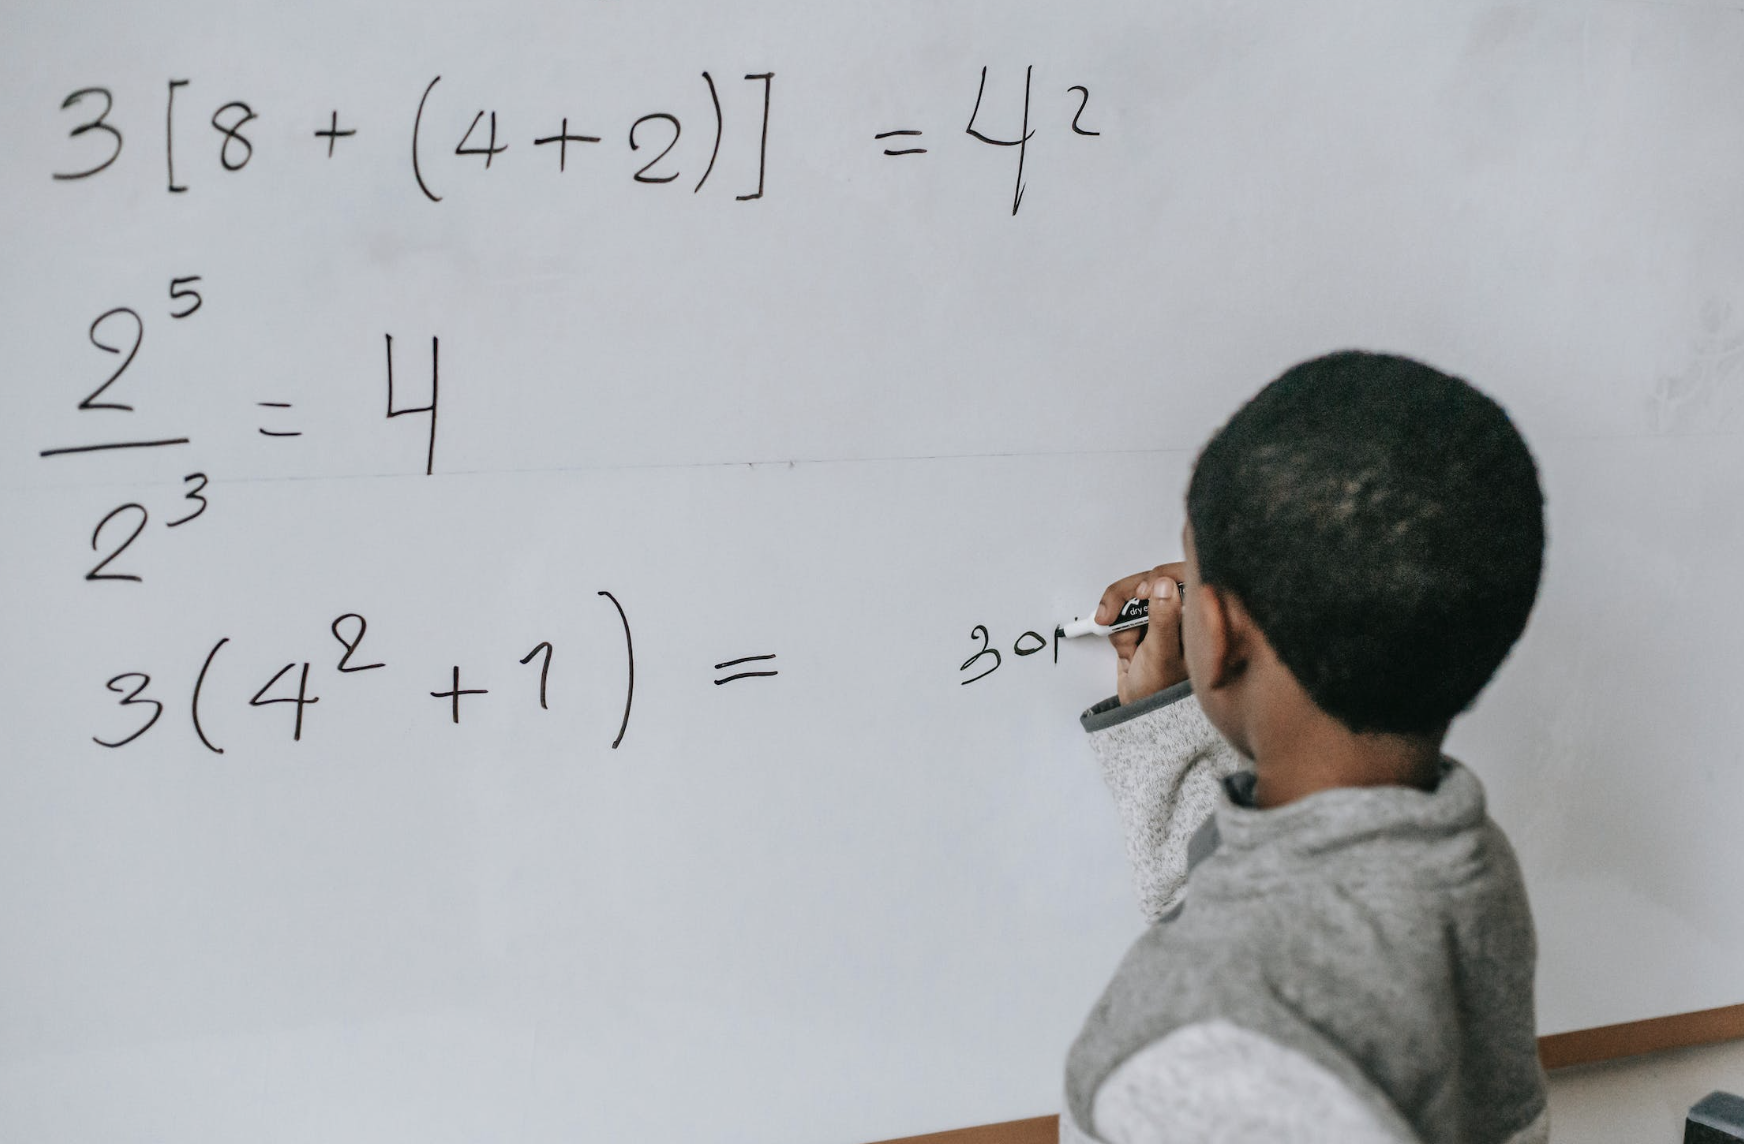 3 [ 8 + ( 4 + 2 ) ] = 42
2⁵ / 2³ = 4
3 ( 4² + 1 ) = 30
dry e